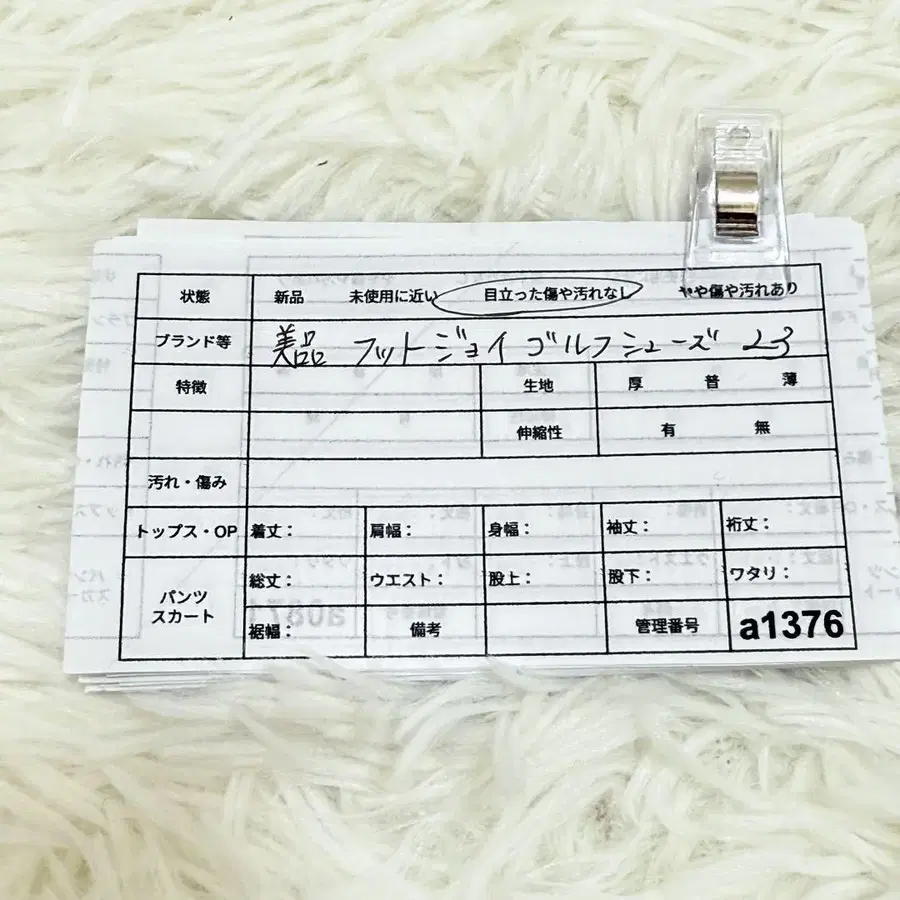 状態 新品 未使用に近い 目立った傷や汚れなし やや傷や汚れあり
ブランド等 美品 フットジョイ ゴルフシューズ 23
特徴 生地 厚 普 薄
伸縮性 有 無
汚れ・傷み
トップス・OP 着丈： 肩幅： 身幅： 袖丈： 裄丈：
パンツ スカート 総丈： ウエスト： 股上： 股下： ワタリ：
裾幅： 備考 管理番号 a1376